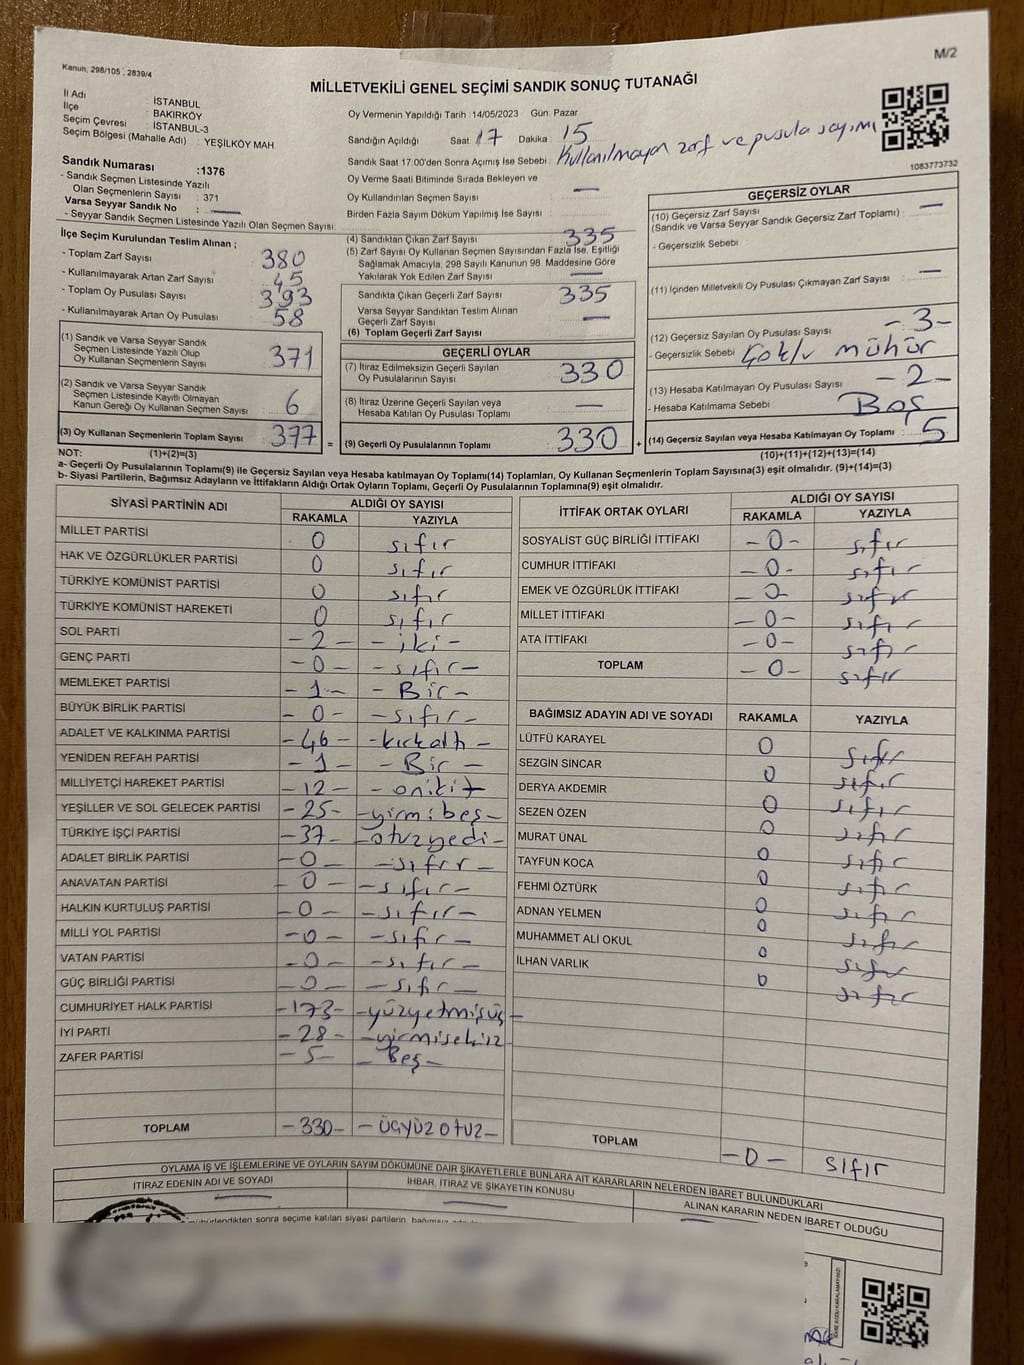 M/2
Kanun, 298/105 ; 2839/4
MİLLETVEKİLİ GENEL SEÇİMİ SANDIK SONUÇ TUTANAĞI
İl Adı : İSTANBUL
İlçe : BAKIRKÖY
Seçim Çevresi : İSTANBUL-3
Seçim Bölgesi (Mahalle Adı) : YEŞİLKÖY MAH.
Oy Vermenin Yapıldığı Tarih : 14/05/2023 Gün: Pazar
Sandığın Açıldığı Saat 17 Dakika 15
Sandık Saat 17:00'den Sonra Açımış İse Sebebi : Kullanılmayan zarf ve pusula sayımı
Oy Verme Saati Bitiminde Sırada Bekleyen ve
Oy Kullandırılan Seçmen Sayısı : —
Birden Fazla Sayım Döküm Yapılmış İse Sayısı : —
1083773732
Sandık Numarası :1376
- Sandık Seçmen Listesinde Yazılı
Olan Seçmenlerin Sayısı : 371
Varsa Seyyar Sandık No : —
- Seyyar Sandık Seçmen Listesinde Yazılı Olan Seçmen Sayısı:
İlçe Seçim Kurulundan Teslim Alınan ;
- Toplam Zarf Sayısı : 380
- Kullanılmayarak Artan Zarf Sayısı : 45
- Toplam Oy Pusulası Sayısı : 393
- Kullanılmayarak Artan Oy Pusulası : 58
(1) Sandık ve Varsa Seyyar Sandık
Seçmen Listesinde Yazılı Olup
Oy Kullanan Seçmenlerin Sayısı : 371
(2) Sandık ve Varsa Seyyar Sandık
Seçmen Listesinde Kayıtlı Olmayan
Kanun Gereği Oy Kullanan Seçmen Sayısı : 6
(3) Oy Kullanan Seçmenlerin Toplam Sayısı : 377 =
(4) Sandıktan Çıkan Zarf Sayısı : 335
(5) Zarf Sayısı Oy Kullanan Seçmen Sayısından Fazla İse, Eşitliği
Sağlamak Amacıyla, 298 Sayılı Kanunun 98. Maddesine Göre
Yakılarak Yok Edilen Zarf Sayısı : —
Sandıkta Çıkan Geçerli Zarf Sayısı : 335
Varsa Seyyar Sandıktan Teslim Alınan
Geçerli Zarf Sayısı : —
(6) Toplam Geçerli Zarf Sayısı :
GEÇERLİ OYLAR
(7) İtiraz Edilmeksizin Geçerli Sayılan
Oy Pusulalarının Sayısı : 330
(8) İtiraz Üzerine Geçerli Sayılan veya
Hesaba Katılan Oy Pusulası Toplamı : —
(9) Geçerli Oy Pusulalarının Toplamı : 330 +
GEÇERSİZ OYLAR
(10) Geçersiz Zarf Sayısı
(Sandık ve Varsa Seyyar Sandık Geçersiz Zarf Toplamı) : —
- Geçersizlik Sebebi
(11) İçinden Milletvekili Oy Pusulası Çıkmayan Zarf Sayısı : —
(12) Geçersiz Sayılan Oy Pusulası Sayısı : - 3 -
- Geçersizlik Sebebi : Çoklu mühür
(13) Hesaba Katılmayan Oy Pusulası Sayısı : - 2 -
- Hesaba Katılmama Sebebi : Boş
(14) Geçersiz Sayılan veya Hesaba Katılmayan Oy Toplamı : 5
NOT: (1)+(2)=(3)
(10)+(11)+(12)+(13)=(14)
a- Geçerli Oy Pusulalarının Toplamı(9) ile Geçersiz Sayılan veya Hesaba katılmayan Oy Toplamı(14) Toplamları, Oy Kullanan Seçmenlerin Toplam Sayısına(3) eşit olmalıdır. (9)+(14)=(3)
b- Siyasi Partilerin, Bağımsız Adayların ve İttifakların Aldığı Ortak Oyların Toplamı, Geçerli Oy Pusulalarının Toplamına(9) eşit olmalıdır.
SİYASİ PARTİNİN ADI ALDIĞI OY SAYISI
RAKAMLA YAZIYLA
MİLLET PARTİSİ 0 sıfır
HAK VE ÖZGÜRLÜKLER PARTİSİ 0 sıfır
TÜRKİYE KOMÜNİST PARTİSİ 0 sıfır
TÜRKİYE KOMÜNİST HAREKETİ 0 sıfır
SOL PARTİ - 2 - - iki -
GENÇ PARTİ - 0 - - sıfır -
MEMLEKET PARTİSİ - 1 - - Bir -
BÜYÜK BİRLİK PARTİSİ - 0 - - sıfır -
ADALET VE KALKINMA PARTİSİ - 46 - - kırkaltı -
YENİDEN REFAH PARTİSİ - 1 - - Bir -
MİLLİYETÇİ HAREKET PARTİSİ - 12 - - oniki -
YEŞİLLER VE SOL GELECEK PARTİSİ - 25 - - yirmibeş -
TÜRKİYE İŞÇİ PARTİSİ - 37 - - otuzyedi -
ADALET BİRLİK PARTİSİ - 0 - - sıfır -
ANAVATAN PARTİSİ - 0 - - sıfır -
HALKIN KURTULUŞ PARTİSİ - 0 - - sıfır -
MİLLİ YOL PARTİSİ - 0 - - sıfır -
VATAN PARTİSİ - 0 - - sıfır -
GÜÇ BİRLİĞİ PARTİSİ - 0 - - sıfır -
CUMHURİYET HALK PARTİSİ - 173 - - yüzyetmişüç -
İYİ PARTİ - 28 - - yirmisekiz -
ZAFER PARTİSİ - 5 - - Beş -
TOPLAM - 330 - - üçyüzotuz -
İTTİFAK ORTAK OYLARI ALDIĞI OY SAYISI
RAKAMLA YAZIYLA
SOSYALİST GÜÇ BİRLİĞİ İTTİFAKI - 0 - sıfır
CUMHUR İTTİFAKI - 0 - sıfır
EMEK VE ÖZGÜRLÜK İTTİFAKI - 0 - sıfır
MİLLET İTTİFAKI - 0 - sıfır
ATA İTTİFAKI - 0 - sıfır
TOPLAM - 0 - sıfır
BAĞIMSIZ ADAYIN ADI VE SOYADI RAKAMLA YAZIYLA
LÜTFÜ KARAYEL 0 sıfır
SEZGİN SİNCAR 0 sıfır
DERYA AKDEMİR 0 sıfır
SEZEN ÖZEN 0 sıfır
MURAT ÜNAL 0 sıfır
TAYFUN KOCA 0 sıfır
FEHMİ ÖZTÜRK 0 sıfır
ADNAN YELMEN 0 sıfır
MUHAMMET ALİ OKUL 0 sıfır
İLHAN VARLIK 0 sıfır
TOPLAM - 0 - sıfır
OYLAMA İŞ VE İŞLEMLERİNE VE OYLARIN SAYIM DÖKÜMÜNE DAİR ŞİKAYETLERLE BUNLARA AİT KARARLARIN NELERDEN İBARET BULUNDUKLARI
İTİRAZ EDENİN ADI VE SOYADI
İHBAR, İTİRAZ VE ŞİKAYETİN KONUSU
ALINAN KARARIN NEDEN İBARET OLDUĞU
mühürlendikten sonra seçime katılan siyasi partilerin, bağımsız